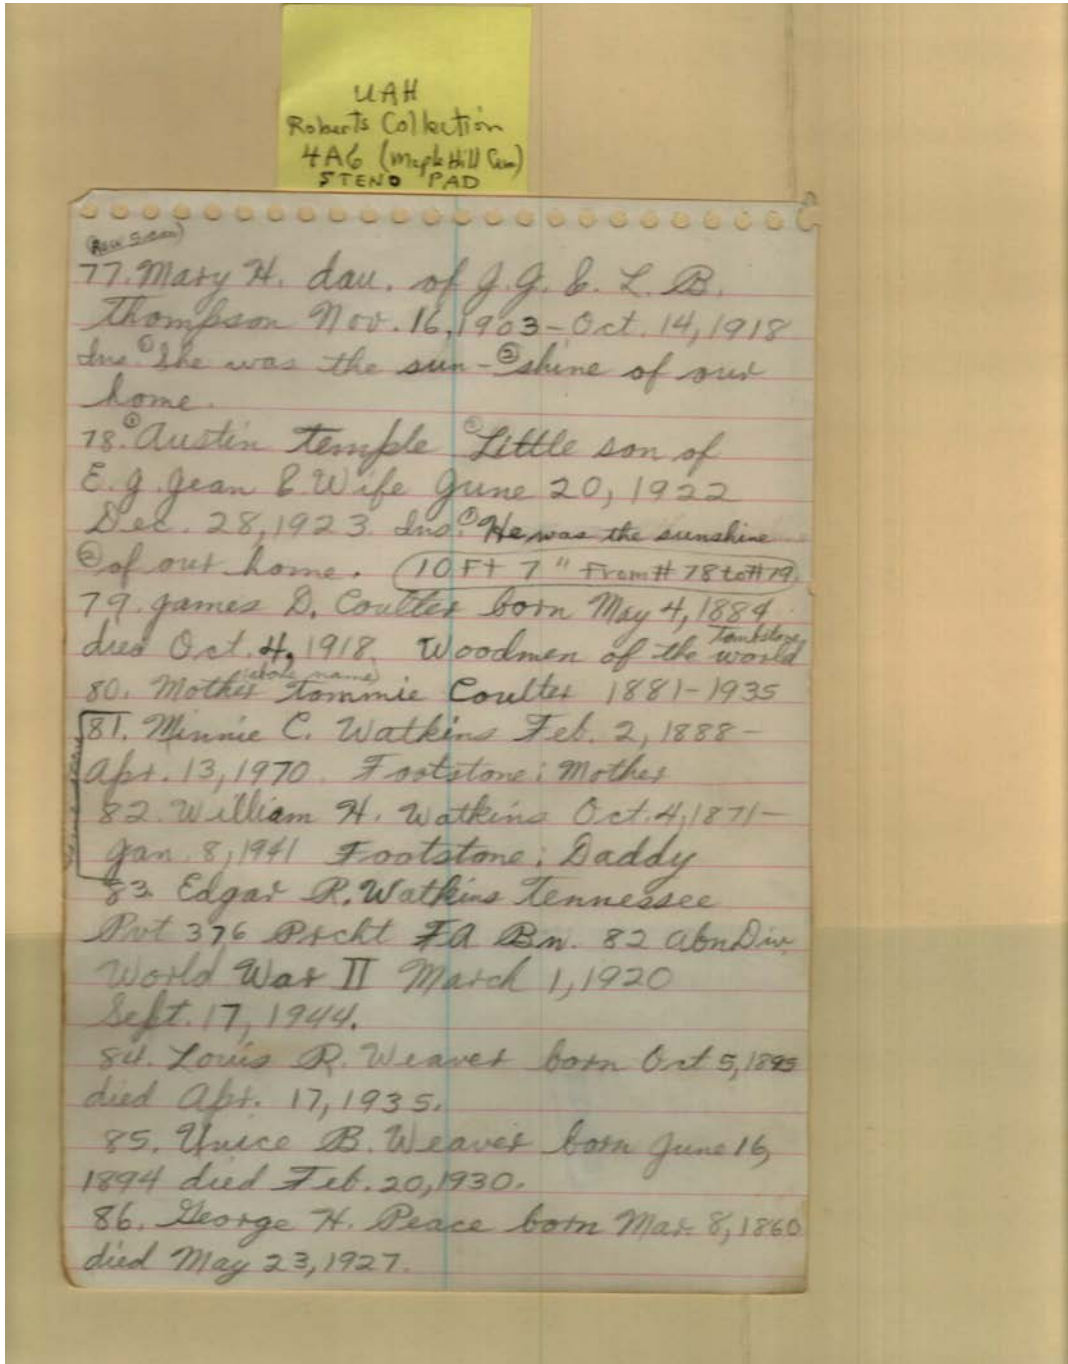 UAH
Roberts Collection
4A6 (Maple Hill Cem)
STENO PAD
77. Mary H. dau. of J.G. & L. B.
Thompson Nov. 16, 1903 - Oct. 14, 1918
Ins ① She was the sun- ② shine of our
home.
78. ① Austin Temple ② Little son of
E. J. Jean & Wife June 20, 1922
Dec. 28, 1923. Ins: ① He was the sunshine
② of our home. (10 Ft 7" From # 78 to # 79)
79. James D. Coulter born May 4, 1884
died Oct. 4, 1918. Woodmen of the world
Tombstone
(above name)
80. Mother Tommie Coulter 1881-1935
81. Minnie C. Watkins Feb. 2, 1888 -
Apr. 13, 1970. Footstone: Mother
82. William H. Watkins Oct. 4, 1871 -
Jan. 8, 1941 Footstone: Daddy
83. Edgar R. Watkins Tennessee
Pvt 376 Prcht FA Bn. 82 Abn Div.
World War II March 1, 1920
Sept. 17, 1944.
84. Louis R. Weaver born Oct 5, 1895
died Apr. 17, 1935.
85. Unice B. Weaver born June 16,
1894 died Feb. 20, 1930.
86. George H. Peace born Mar. 8, 1860
died May 23, 1927.